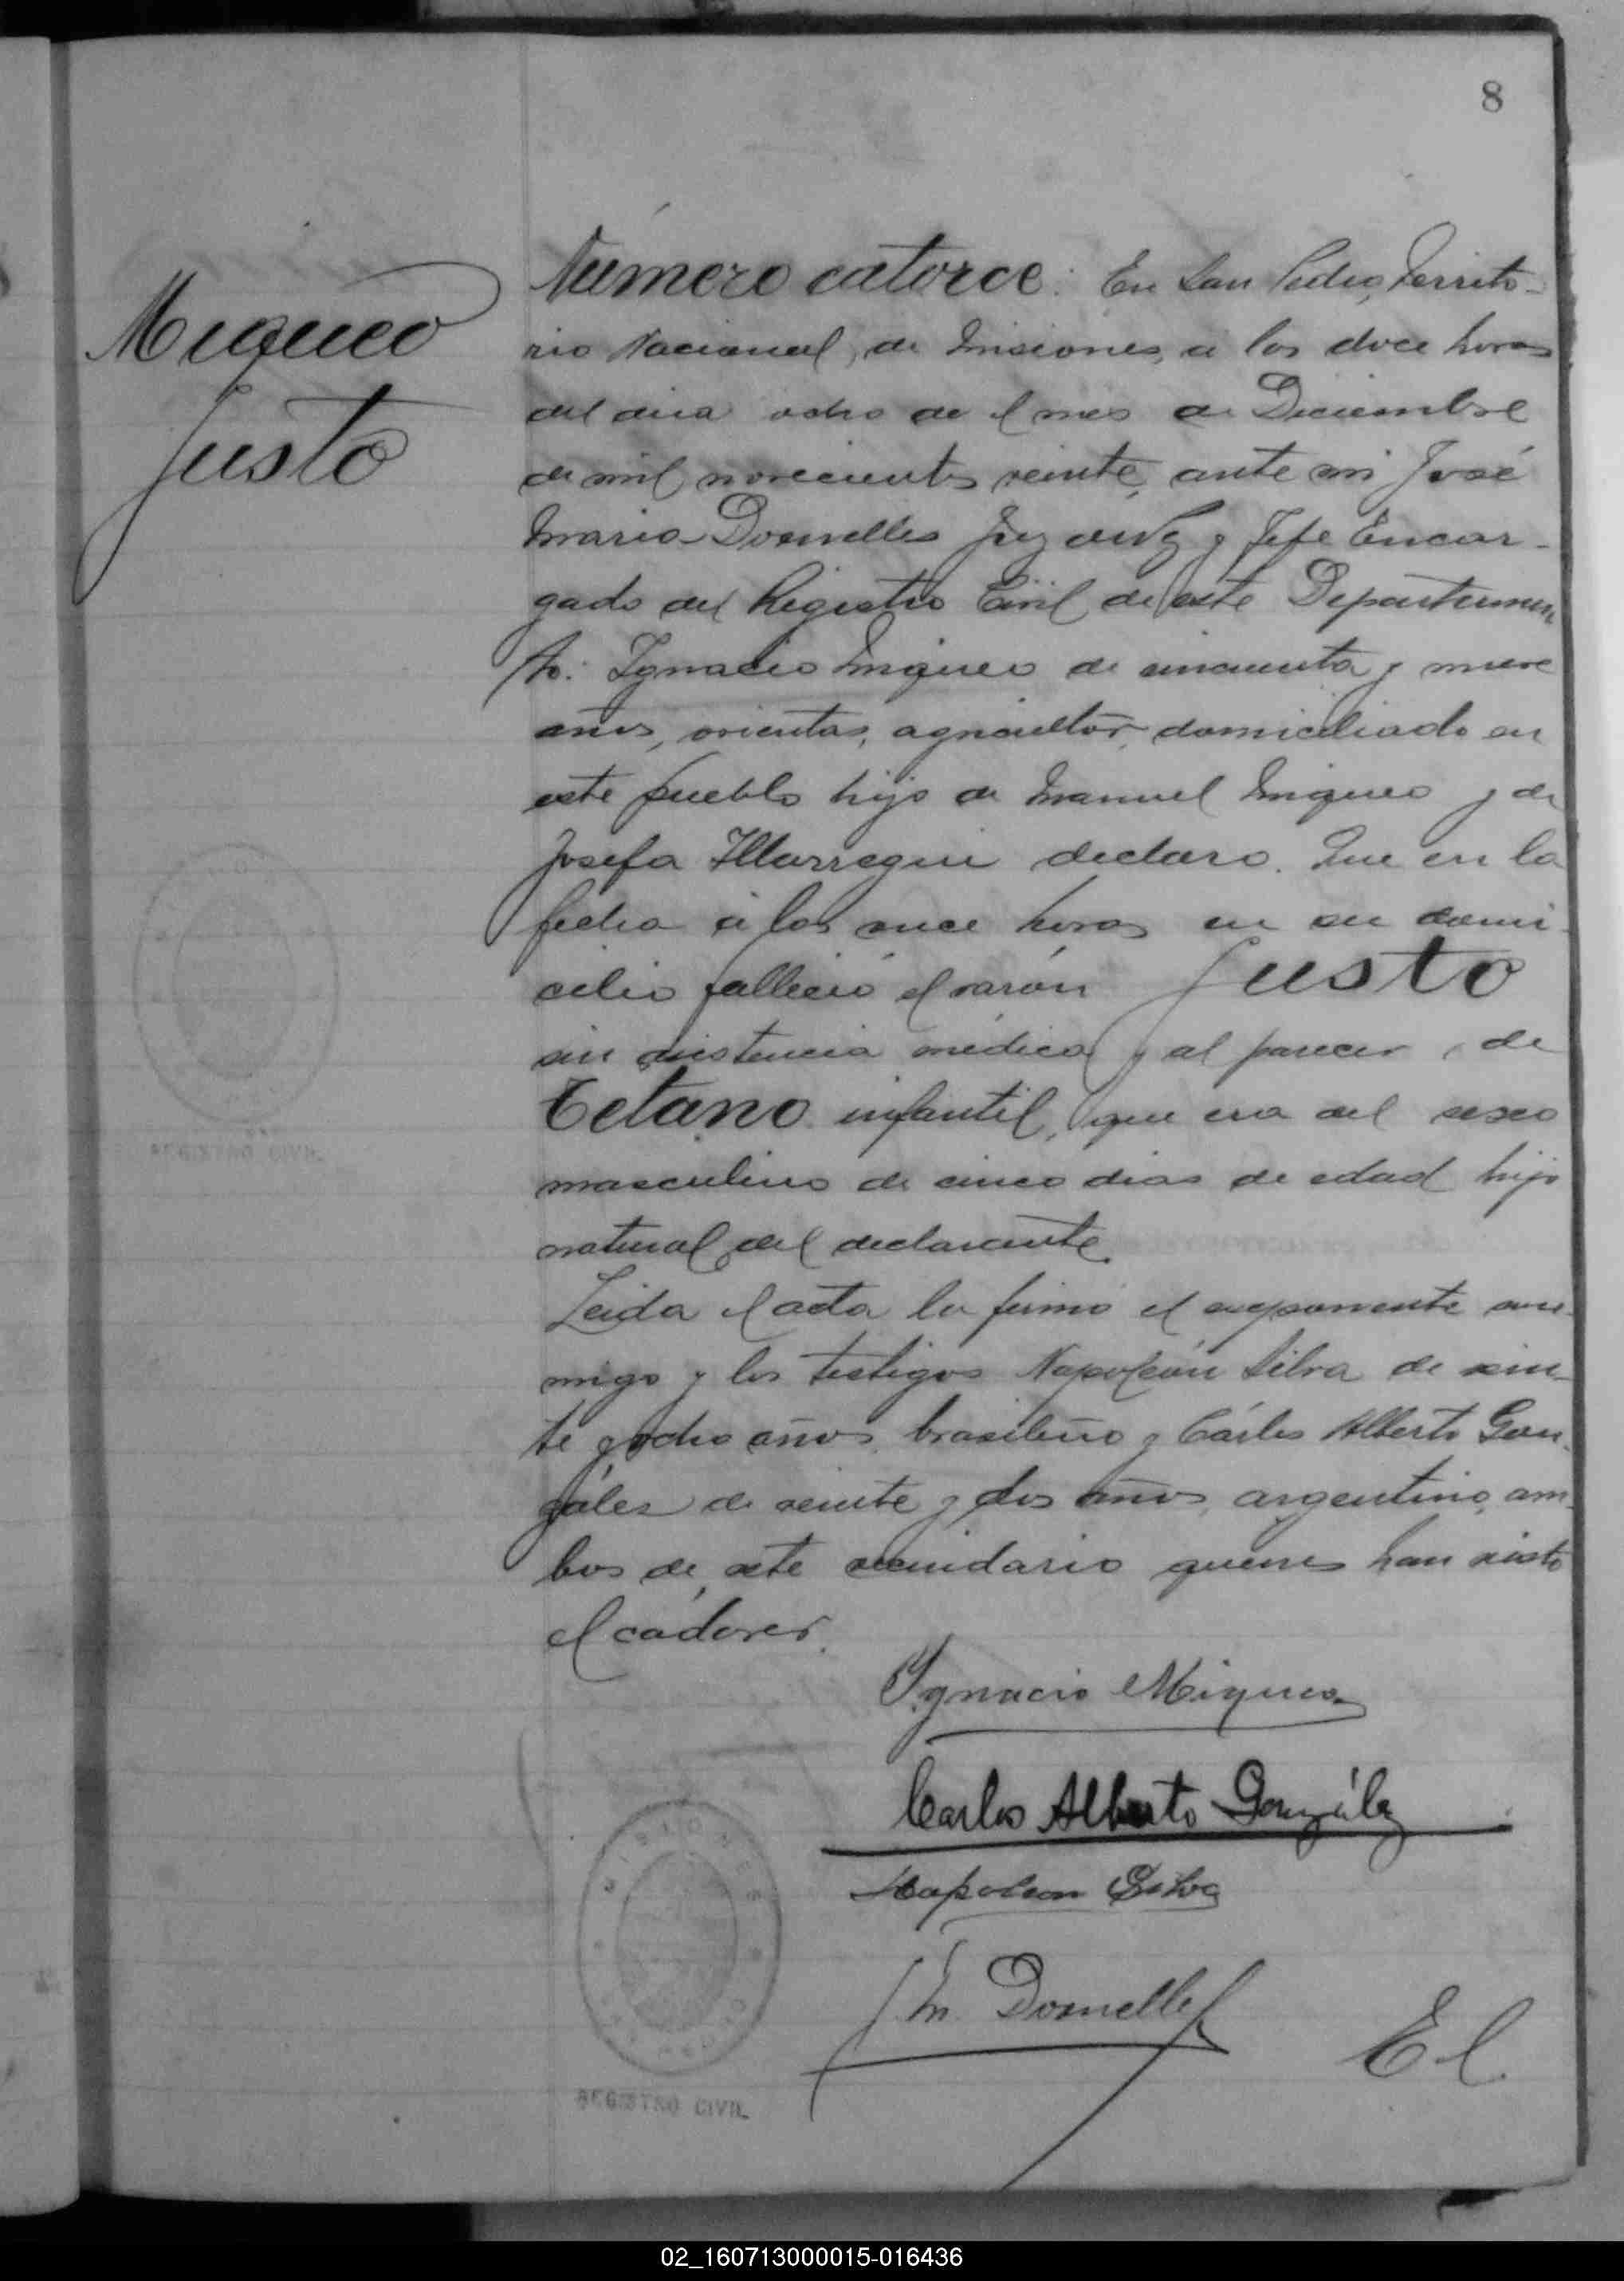 8
Miqueo
Justo
Número catorce: En San Pedro, Territo-
rio Nacional, de Misiones, a las doce horas
del dia ocho de el mes de Diciembre
de mil novecientos veinte, ante mi José
Maria Dornelles Juez de Paz y Jefe Encar-
gado del Registro Civil de este Departamen
to: Ignacio Miqueo de cincuenta y nueve
años, oriental, agricultor, domiciliado en
este pueblo hijo de Manuel Miqueo y de
Josefa Illarregui declaro. Que en la
fecha á las once horas en su domi-
cilio falleció el varón Justo
sin asistencia médica y al parecer, de
Tetano infantil, que era del sexo
masculino de cinco dias de edad hijo
natural del declarante.
Leida el acta la firmó el exponente con-
migo y los testigos Napoleón Silva de vein-
te y ocho años, brasileño y Cárlos Alberto Gon-
záles de veinte y dos años, argentino, am-
bos de este vecindario quenes han visto
el cadaver.
Ygnacio Miqueo
Carlos Alberto González
Napoleon Silva
J. M. Dornelles
El
MISIONES
REGISTRO CIVIL
REGISTRO CIVIL
02_160713000015-016436